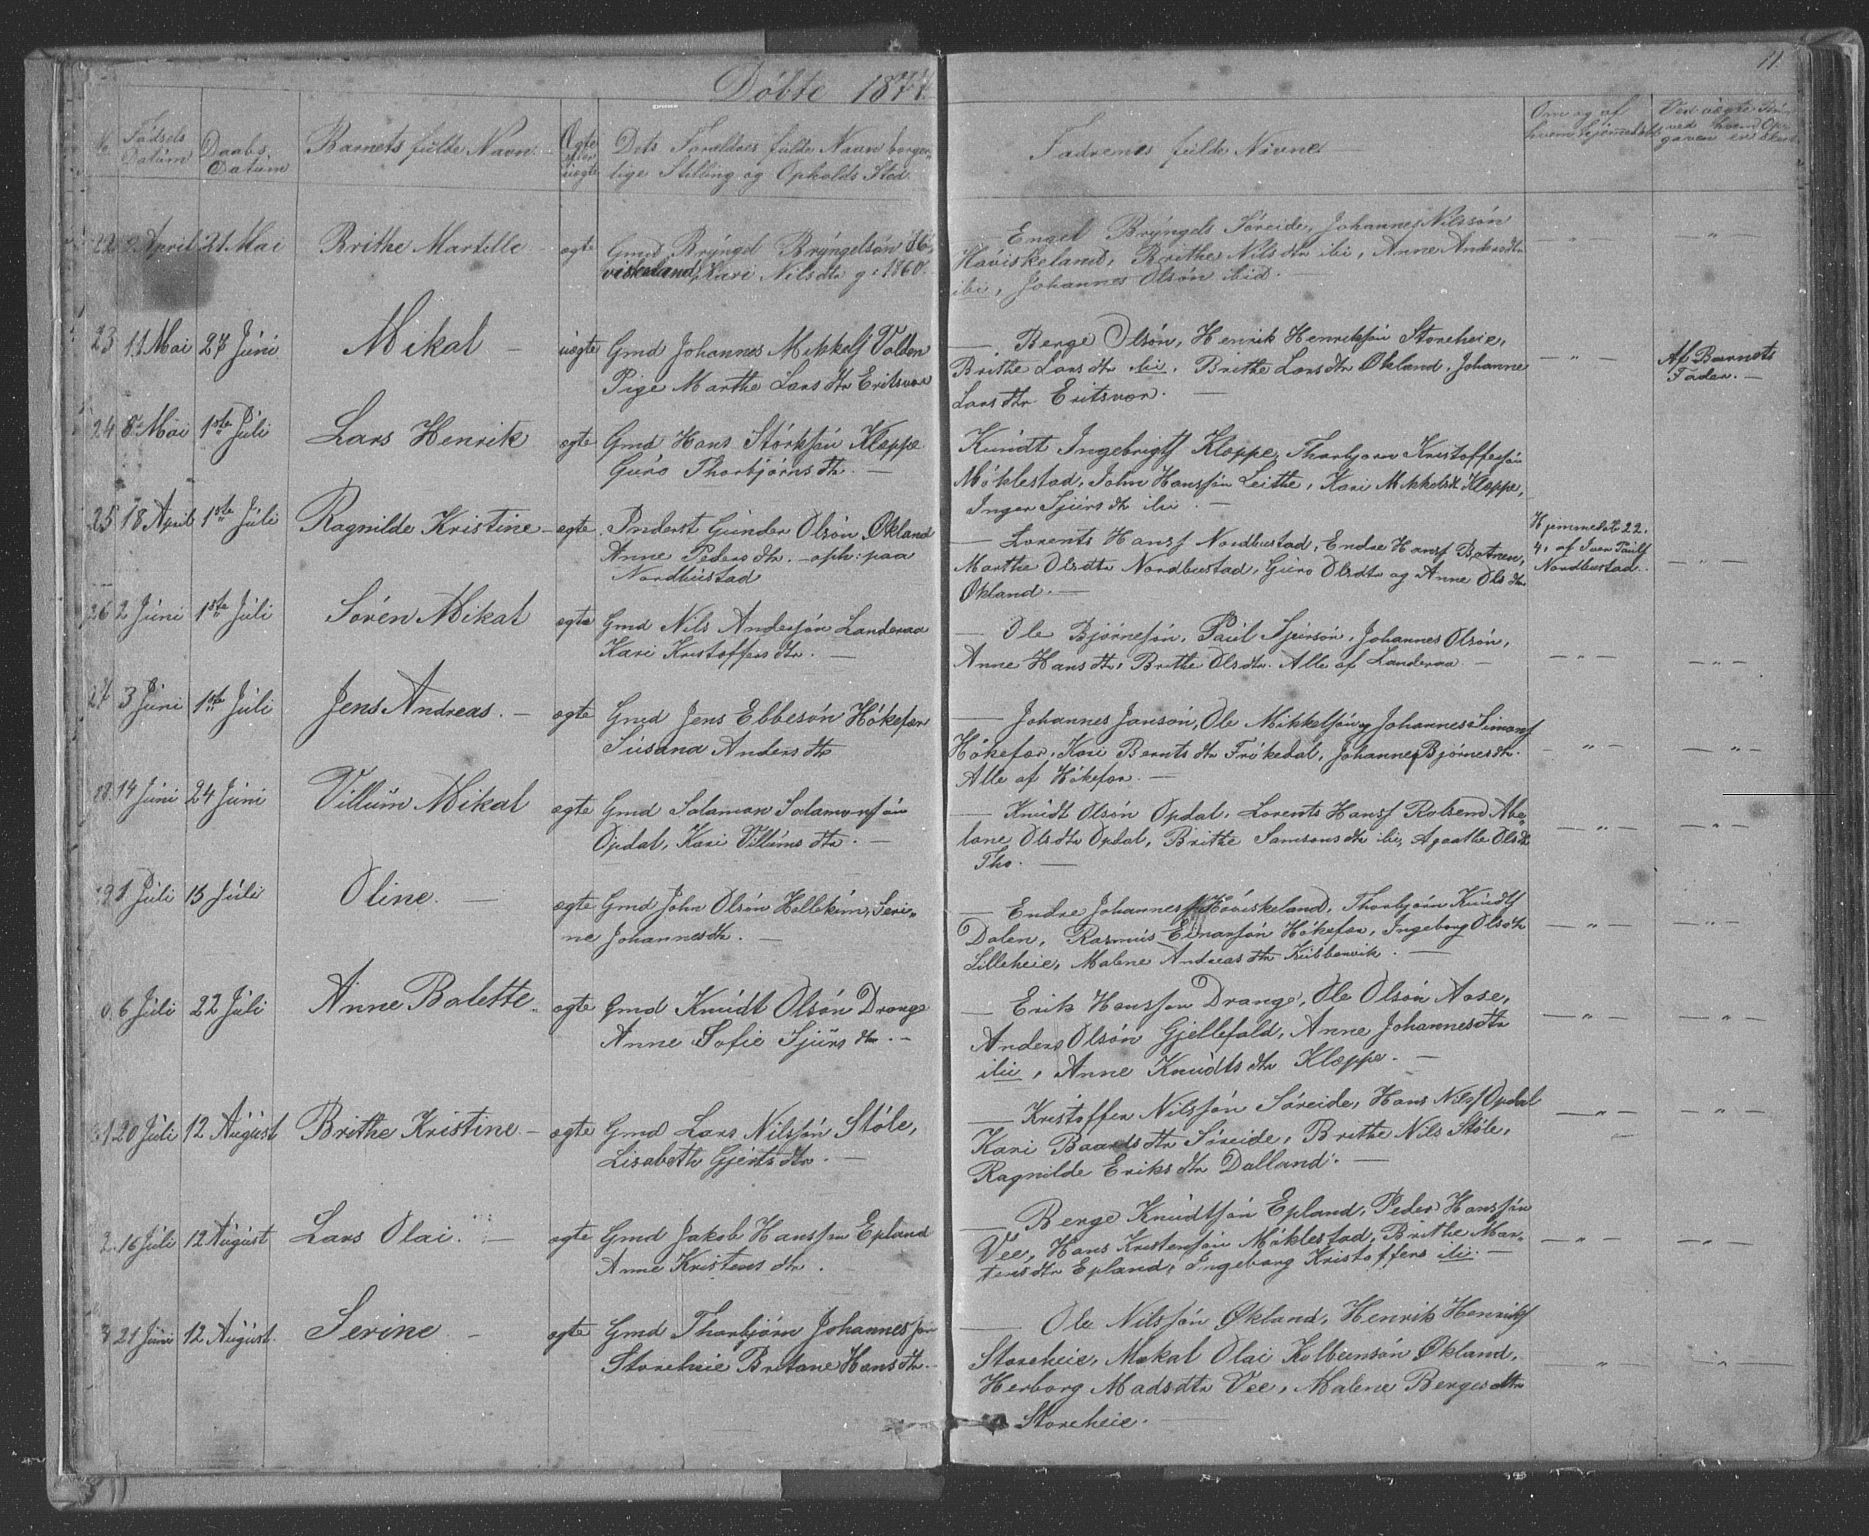 Döbte 1877.
11
No Födsels Datúm
Daabs Datúm
Barnets fulde Navn
Ægte eller uægte
Dets Foraldres fulde Navn borger-
lige Stilling og Opholds Sted.
Faddrenes fulde Navne
Om og af hvem hjemmedöbt
Ved uægte ved hvem Op-
gaven er skeet
22 April 21 Mai Brithe Martille ægte Gmd Brÿngel Brÿngelsön Hö-
viskeland, Kari Nils dtr g: 1860.
— Engel Brÿngels Söreide, Johannes Nilssön
Höviskeland, Brithe Nils dtr ibi, Anne Anders dtr
ibi, Johannes Olsön ibid. —
23 11 Mai 24 Júni Mikal — uægte Gmd Johannes Mikkels Valden
Pige Marthe Lars dtr Eritsvær
— Berge Olsön, Henrik Henriksön Storeheie,
Brithe Lars dtr ibi. Brithe Lars dtr Økland. Johanne
Lars dtr Eritsvær. —
— " —
Af Barnets
Fader. —
24 8 Mai 1ste Júli Lars Henrik ægte Gmd Hans Störksön Kloppe
Gúro Thorbjörns dtr. —
Knúdt Ingebrigts Kloppe, Thorbjörn Kristoffersön
Möklestad, John Hanssön Leithe, Kari Mikkels dtr Kloppe,
Inger Sjúrs dtr ibi. —
25 18 April 1ste Júli Ragnilde Kristine — ægte Inderst Gúnder Olsön Økland
Anne Peders dtr. — oph: paa
Nordbústad
— Lorents Hans Nordbustad, Endre Hans Botnen,
Marthe Ols dtr Nordbustad, Gúro Ols dtr og Anne Ols dtr
Økland. —
Hjemmedöbt 22.
4. af Iver Paúls
Nordbustad.
— " —
26 2 Júni 1ste Júli Sören Mikal ægte Gmd Nils Andersön Landeraa
Kari Kristoffers dtr. —
— Ole Björnesön, Paúl Sjúrsön, Johannes Olsön,
Anne Hans dtr, Brithe Ols dtr. Alle af Landeraa —
— " —
— " —
27 3 Júni 1ste Júli Jens Andreas. — ægte Gmd Jens Ebbesön Hökefær
Súsana Anders dtr
— Johannes Jansön, Ole Mikkelsön og Johannes Simons
Hökefær, Kari Bernts dtr Frökedal, Johannes Björnes dtr.
Alle af Hökefær. —
— " —
— " —
28. 14 Júni 24 Júni Villúm Mikal ægte Gmd Salamon Salamonsön
Opdal, Kari Villúms dtr. —
— Knúdt Olsön Opdal, Lorents Hans Rolsend Abe-
lone Ols dtr Opdal, Brithe Samsons dtr ibi, Agaathe Ols dtr
Tho. —
— " —
— " —
29 1 Júli 15 Júli Oline. — ægte Gmd John Olsön Hellekim, Seri-
ne Johannes dtr. —
— Endre Johannes Höviskeland, Thorbjörn Knúdts
Dalen, Rasmús Einarsön Hökefær, Ingeborg Ols dtr
Lilleheie, Malene Andreas dtr Kúbbervik. —
— " —
— " —
0. 6 Júli 22 Júli Anne Bolette. ægte Gmd Knúdt Olsön Drange
Anne Sofie Sjúrs dtr. —
— Erik Hanssön Drange, Ole Olsön Aase,
Anders Olsön Gjellefald, Anne Johannes dtr
ibi, Anne Knúdts dtr Kloppe. —
— " —
— " —
31 20 Júli 12 Aúgúst Brithe Kristine. — ægte Gmd Lars Nilssön Stöle,
Lisabeth Gjerts dtr. —
— Kristoffer Nilssön Söreide, Hans Nils Opdal
Kari Baards dtr Söreide, Brithe Nils Stöle,
Ragnilde Eriks dtr Dalland. —
— " —
— " —
2. 16 Júli 12 Aúgúst Lars Olai. — ægte Gmd Jakob Hanssön Epland
Anne Kristens dtr.
— Berge Knúdtsön Epland, Peder Hanssön
Vee, Hans Kristensön Möklestad, Brithe Mar-
tens dtr Epland, Ingeborg Kristoffers ibi. —
— " —
— " —
3 21 Júni 12 Aúgúst. Serine — ægte Gmd Thorbjörn Johannessön
Storeheie Britane Hans dtr. —
— Ole Nilssön Økland, Henrik Henriks
Storeheie, Mikal Olai Kolbeinsön Økland,
Herborg Mads dtr Vee, Malene Berges dtr
Storeheie. —